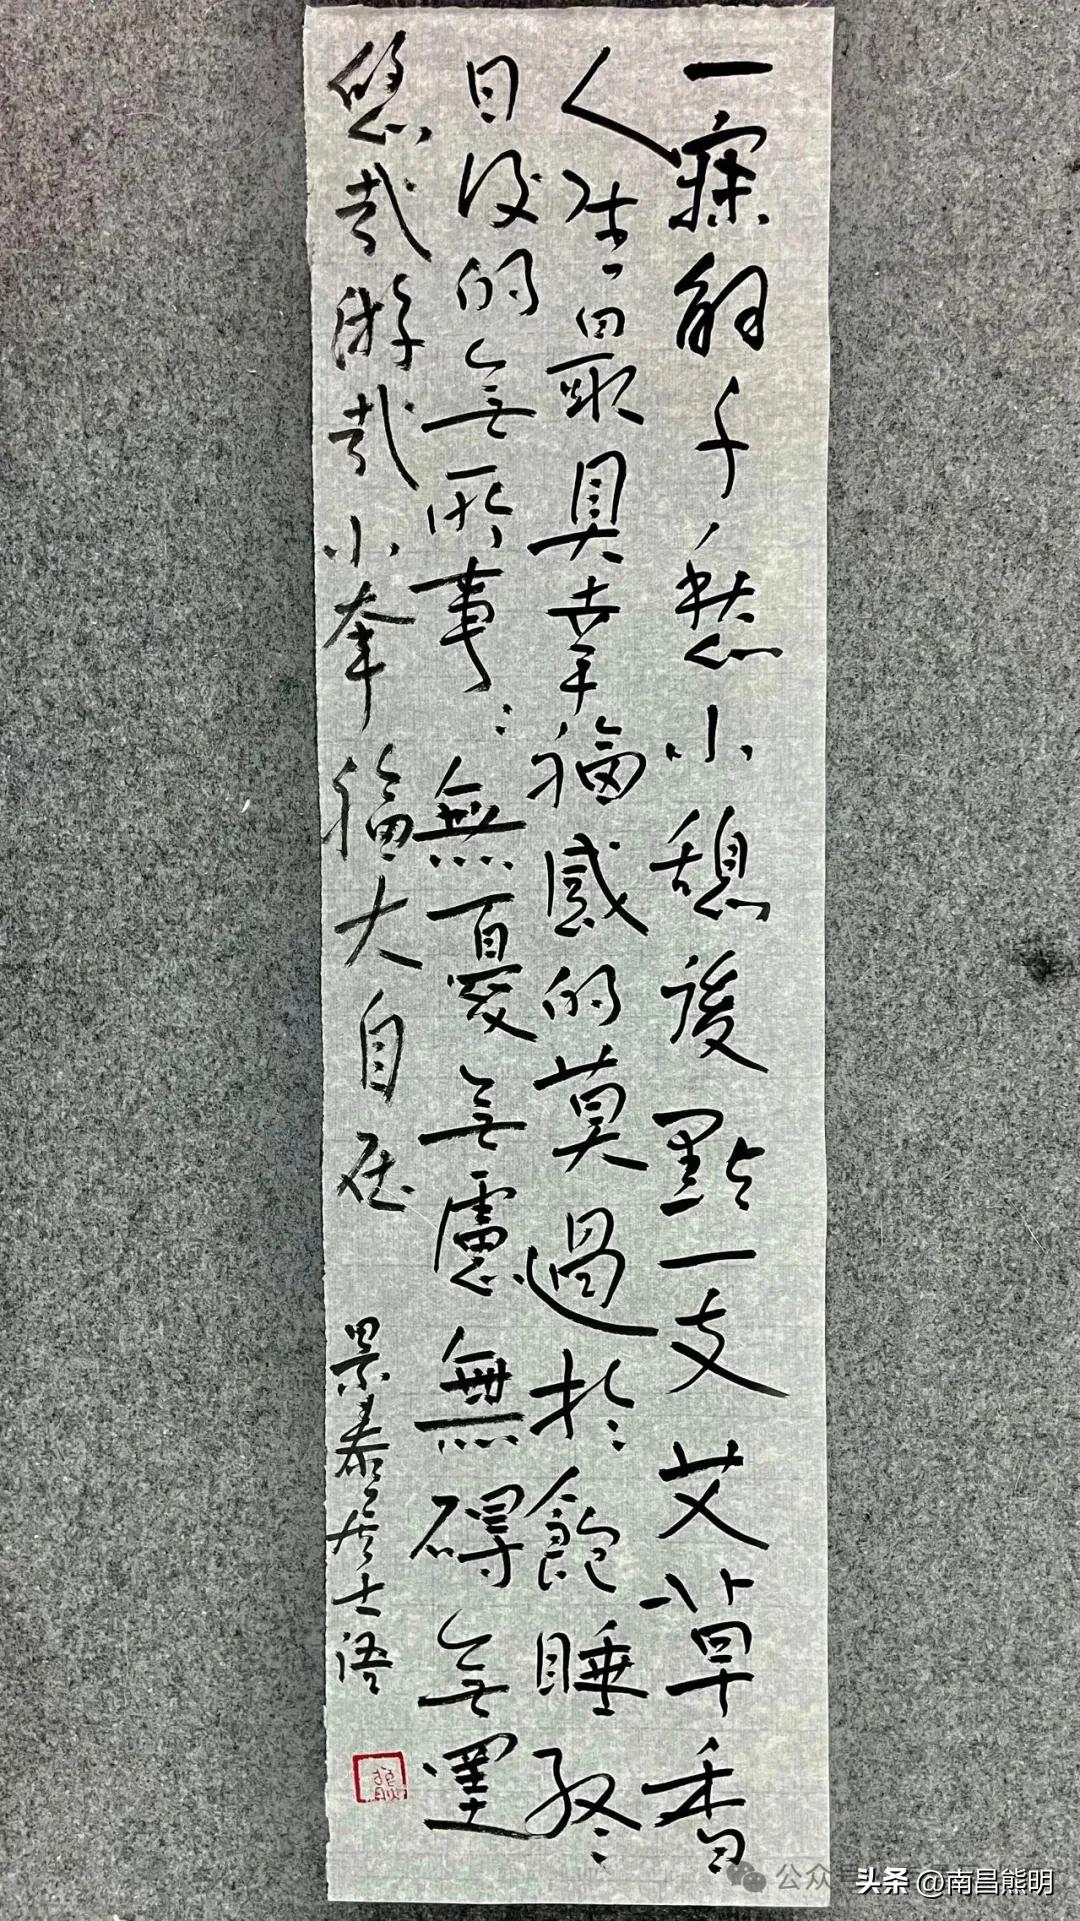 一寐解千愁小憩後點一支艾草香
人生最具幸福感的莫過於飽睡終
日後的無所事：無憂無慮無礙無罣
悠哉游哉小幸福大自在
景泰居士語
公众
头条 @南昌熊明